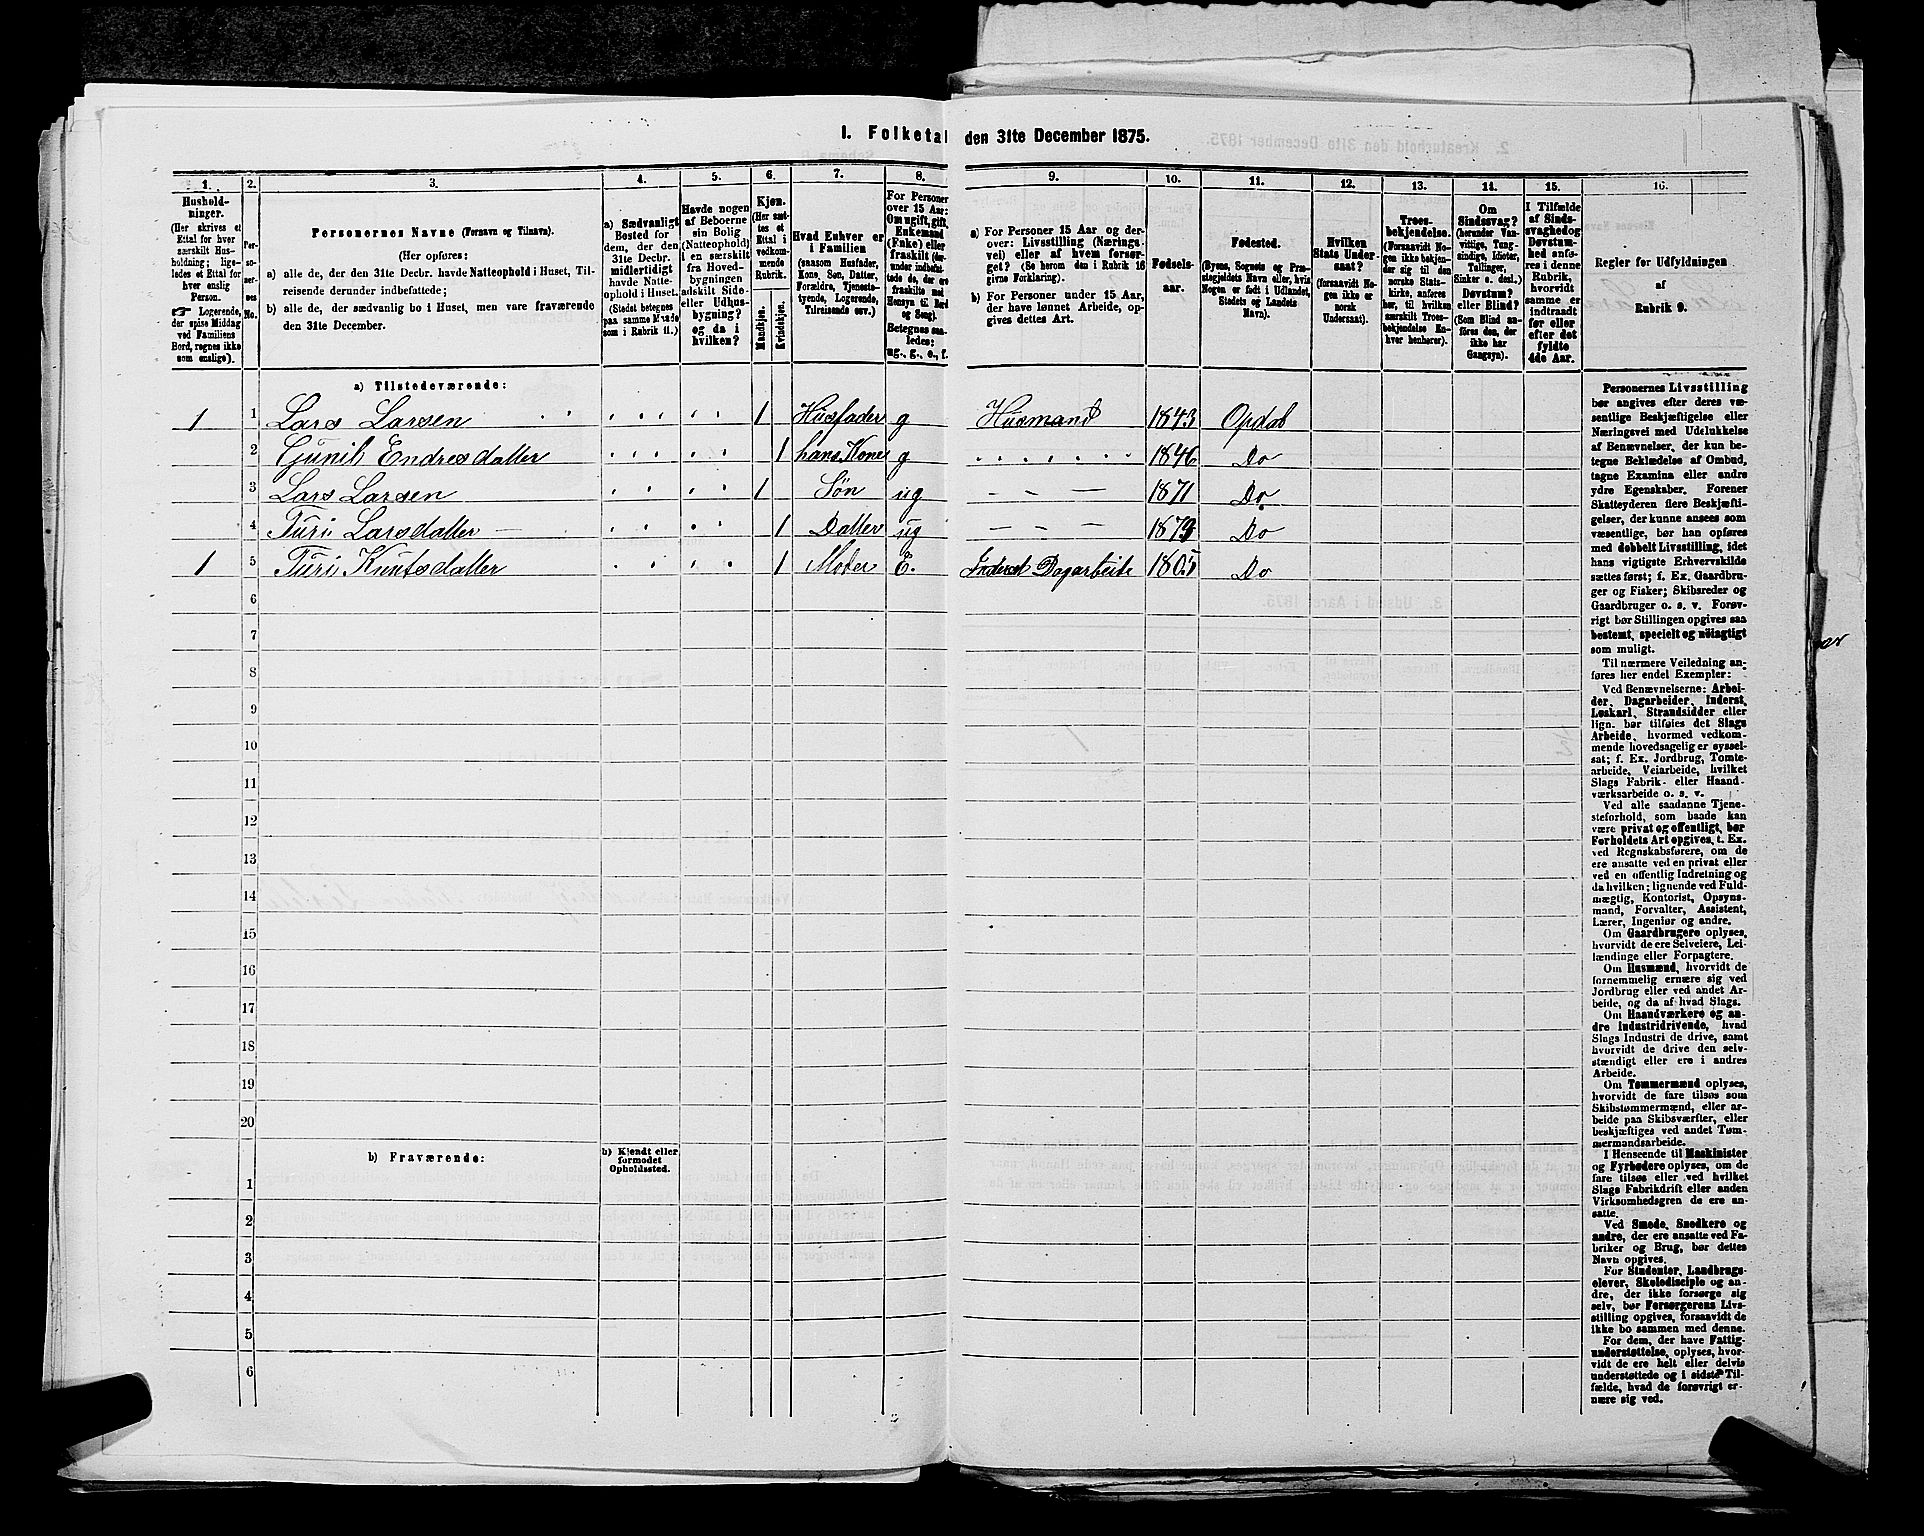 1. Folketal den 31te December 1875.
1.
2.
3.
4.
5.
6.
7.
8.
9.
10.
11.
12.
13.
14.
15.
16.
Hushold-
ninger.
(Her skrives et
Ettal for hver
særskilt Hus-
holdning; lige-
ledes et Ettal for
hver enslig
Person.
☛ Logerende,
der spise Middag
ved Familiens
Bord, regnes ikke
som enslige).
Per-
so-
ner-
nes
No.
Personernes Navne (Fornavn og Tilnavn).
(Her opføres:
a) alle de, der den 31te Decbr. havde Natteophold i Huset, Til-
reisende derunder indbefattede;
b) alle de, der sædvanlig bo i Huset, men vare fraværende
den 31te December.
a) Sædvanligt
Bosted for
dem, der den
31te Decbr.
midlertidigt
havde Natte-
ophold i Huset.
(Stedet betegnes
paa samme Maade
som i Rubrik 11.)
Havde nogen
af Beboerne
sin Bolig
(Natteophold)
i en særskilt
fra Hoved-
bygningen
adskilt Side-
eller Udhus-
bygning?
og da i
hvilken?
Kjøn.
(Her sæt-
tes et
Ettal i
vedkom-
mende
Rubrik.
Mandkjøn.
Kvindekjøn.
Hvad Enhver er
i Familien
(saasom Husfader,
Kone, Søn, Datter,
Forældre, Tjeneste-
tyende, Logerende,
Tilreisende osv.)
For Personer
over 15 Aar:
Om ugift, gift,
Enkemand
(Enke) eller
fraskilt (der-
under indbefat-
tede de, der ere
fraskilte med
Hensyn til Bord
og Seng).
Betegnes saa-
ledes:
ug., g., e., f.
a) For Personer 15 Aar og der-
over: Livsstilling (Nærings-
vei) eller af hvem forsør-
get? (Se herom den i Rubrik 16
givne Forklaring).
b) For Personer under 15 Aar,
der have lønnet Arbeide, op-
gives dettes Art.
Fødsels-
aar.
Fødested.
(Byens, Sognets og Præ-
stegjeldets Navn eller, hvis
Nogen er født i Udlandet,
Stedets og Landets
Navn).
Hvilken
Stats Under-
saat?
(forsaavidt No-
gen ikke er
norsk
Undersaat).
Troes-
bekjendelse.
(Forsaavidt No-
gen ikke bekjen-
der sig til den
norske Stats-
kirke, anføres
her, til hvilken
særskilt Troes-
bekjendelse En-
hver henhører).
Om
Sindssvag?
(herunder Van-
vittige, Tung-
sindige, Idioter,
Tullinger,
Sinker o. desl.)
Døvstum?
eller Blind?
(Som Blind an-
føres den, der
ikke har
Gangsyn).
I Tilfælde
af Sinds-
svaghed og
Døvstum-
hed anfø-
res i denne
Rubrik,
hvorvidt
samme er
indtraadt
før eller
efter det
fyldte
4de Aar.
Regler for Udfyldningen
af
Rubrik 9.
a) Tilstedeværende:
1 1 Lars Larsen 1 Husfader g Husmand 1843 Opdal
2 Gunil Endresdatter 1 hans Kone g 1846 Do
3 Lars Larsen 1 Søn ug 1871 Do
4 Turi Larsdatter 1 Datter ug Do
1 5 Turi Knutsdatter 1 Moder E. Inderst Dagarbeide 1805 Do
6
7
8
9
10
11
12
13
14
15
16
17
18
19
20
b) Fraværende:
b) Kjendt eller
formodet
Opholdssted.
1
2
3
4
5
6
Personernes Livsstilling
bør angives efter deres væ-
sentlige Beskjæftigelse eller
Næringsvei med Udelukkelse
af Benævnelser, der kun be-
tegne Beklædelse af Ombud,
tagne Examina eller andre
ydre Egenskaber. Forener
Skatteyderen flere Beskjæfti-
gelser, der kunne ansees som
væsentlige, bør han opføres
med dobbelt Livsstilling, idet
hans vigtigste Erhvervskilde
sættes først; f. Ex. Gaardbru-
ger og Fisker; Skibsreder og
Gaardbruger o. s. v. Forøv-
rigt bør Stillingen opgives saa
bestemt, specielt og nøiagtigt
som muligt.
Til nærmere Veiledning an-
føres her endel Exempler:
Ved Benævnelserne: Arbei-
der, Dagarbeider, Inderst,
Løskarl, Strandsidder eller
lign. bør tilføies det Slags
Arbeide, hvormed vedkom-
mende hovedsagelig er syssel-
sat; f. Ex. Jordbrug, Tomte-
arbeide, Veiarbeide, hvilket
Slags Fabrik- eller Haand-
værksarbeide o. s. v.
Ved alle saadanne Tjene-
steforhold, som baade kan
være privat og offentligt, bør
Forholdets Art opgives, t. Ex.
ved Regnskabsførere, om de
ere ansatte ved en privat eller
ved en offentlig Indretning og
da hvilken; lignende ved Fuld-
mægtig, Kontorist, Opsyns-
mand, Forvalter, Assistent,
Lærer, Ingeniør og andre.
Om Gaardbrugere oplyses,
hvorvidt de ere Selveiere, Lei-
lændinge eller Forpagtere.
Om Husmænd, hvorvidt de
fornemmelig ernære sig ved
Jordbrug eller ved andet Ar-
beide, og da af hvad Slags.
Om Haandværkere og an-
dre Industridrivende, hvad
Slags Industri de drive, samt
hvorvidt de drive den selv-
stændigt eller ere i andres
Arbeide.
Om Tømmermænd oplyses,
hvorvidt de fare tilsøs som
Skibstømmermænd, eller ar-
beide paa Skibsværfter, eller
beskjæftiges ved andet Tøm-
mermandsarbeide.
I Henseende til Maskinister
og Fyrbødere oplyses, om de
fare tilsøs eller ved hvilket
Slags Fabrikdrift eller anden
Virksomhedsgren de ere an-
satte.
Ved Smede, Snedkere og
andre, der ere ansatte ved Fa-
briker og Brug, bør dettes
Navn opgives.
For Studenter, Landbrugs-
elever, Skoledisciple og an-
dre, der ikke forsørge sig
selv, bør Forsørgerens Livs-
stilling opgives, forsaavidt de
ikke bo sammen med denne.
For dem, der have Fattig-
understøttelse, oplyses, hvor-
vidt de ere helt eller delvis
understøttede og i sidste Til-
fælde, hvad de forøvrigt er-
nære sig ved.